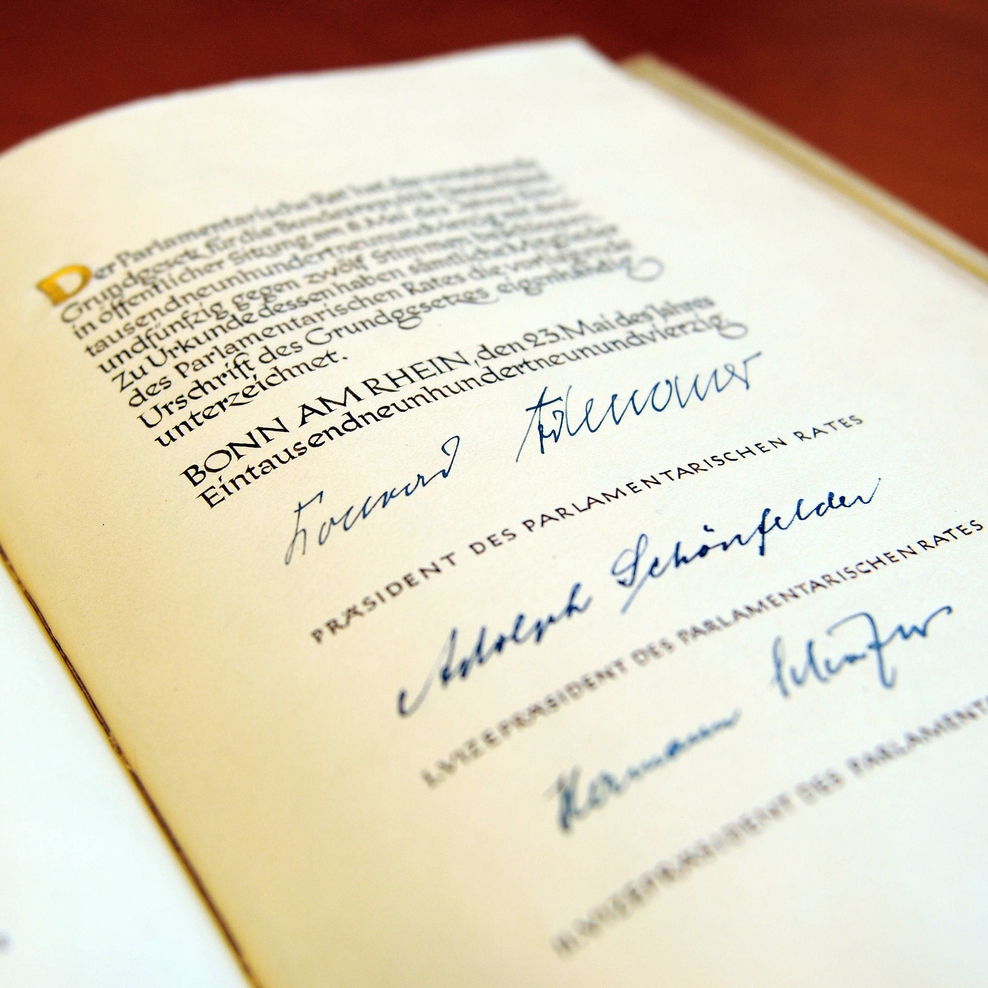 Der Parlamentarische Rat hat das vorstehende
Grundgesetz für die Bundesrepublik Deutschland
in öffentlicher Sitzung am 8. Mai des Jahres Ein-
tausendneunhundertneunundvierzig mit drei-
undfünfzig gegen zwölf Stimmen beschlossen.
Zu Urkunde dessen haben sämtliche Mitglieder
des Parlamentarischen Rates die vorliegende
Urschrift des Grundgesetzes eigenhändig
unterzeichnet.
BONN AM RHEIN, den 23. Mai des Jahres
Eintausendneunhundertneunundvierzig
Konrad Adenauer
PRÆSIDENT DES PARLAMENTARISCHEN RATES
Adolph Schönfelder
I. VIZEPRÆSIDENT DES PARLAMENTARISCHEN RATES
Hermann Schäfer
II. VIZEPRÆSIDENT DES PARLAMENTA